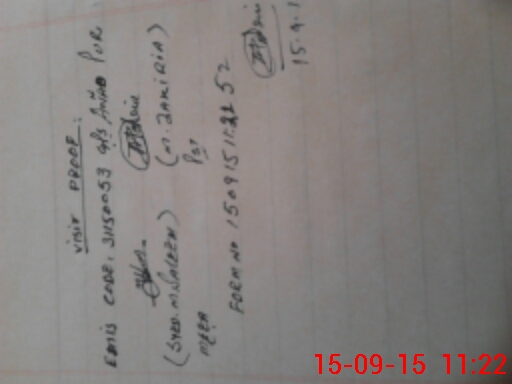 VISIT PROOF:
EMIS CODE: 31150053 G/S PUR
(SYED. M. SALEEM) (M. ZAKIRIA)
MEEA PST
FORM NO 150915112252
15.9.1
15-09-15 11:22